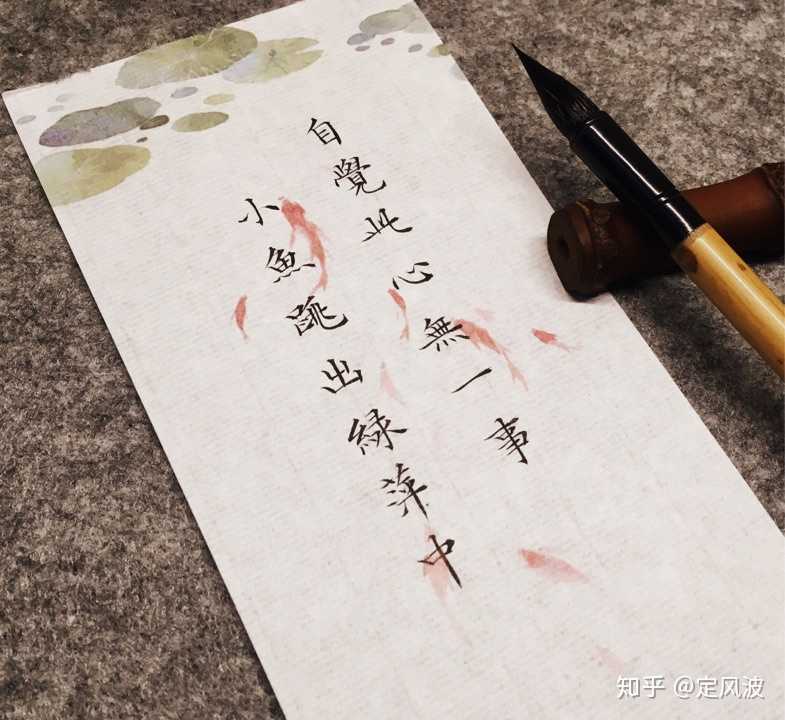 自覺此心無一事
小魚跳出綠萍中
知乎 @定风波